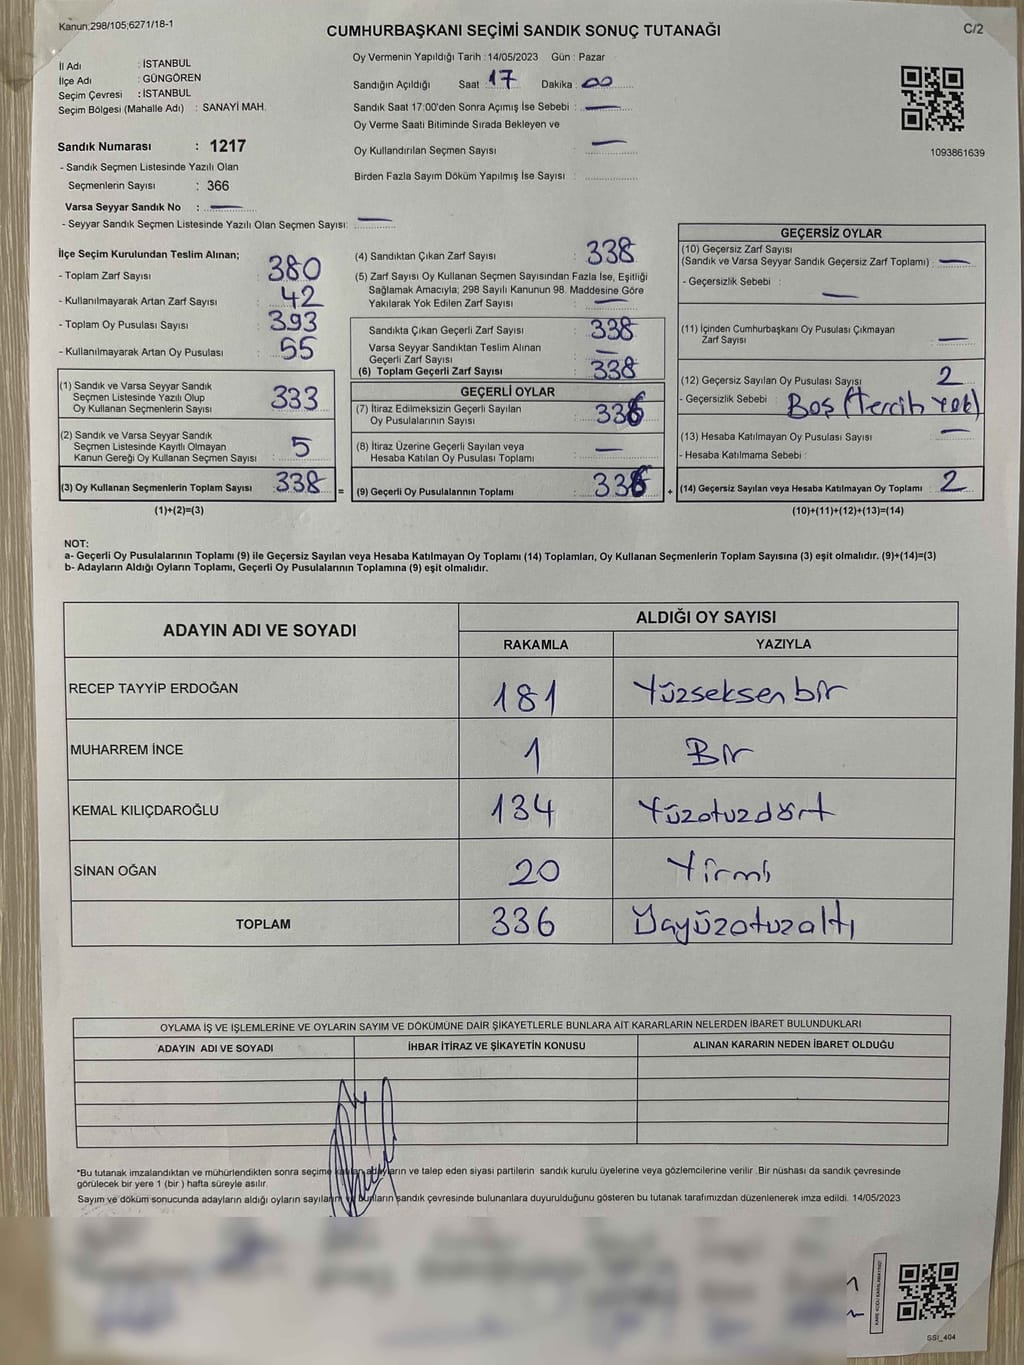 Kanun;298/105;6271/18-1
CUMHURBAŞKANI SEÇİMİ SANDIK SONUÇ TUTANAĞI
C/2
İl Adı : İSTANBUL
İlçe Adı : GÜNGÖREN
Seçim Çevresi : İSTANBUL
Seçim Bölgesi (Mahalle Adı) : SANAYİ MAH.
Sandık Numarası : 1217
- Sandık Seçmen Listesinde Yazılı Olan
Seçmenlerin Sayısı : 366
Varsa Seyyar Sandık No : —
- Seyyar Sandık Seçmen Listesinde Yazılı Olan Seçmen Sayısı: —
Oy Vermenin Yapıldığı Tarih : 14/05/2023 Gün : Pazar
Sandığın Açıldığı Saat 17 Dakika : 00
Sandık Saat 17:00'den Sonra Açımış İse Sebebi : —
Oy Verme Saati Bitiminde Sırada Bekleyen ve
Oy Kullandırılan Seçmen Sayısı : —
Birden Fazla Sayım Döküm Yapılmış İse Sayısı :
1093861639
İlçe Seçim Kurulundan Teslim Alınan;
- Toplam Zarf Sayısı : 380
- Kullanılmayarak Artan Zarf Sayısı : 42
- Toplam Oy Pusulası Sayısı : 393
- Kullanılmayarak Artan Oy Pusulası : 55
(1) Sandık ve Varsa Seyyar Sandık
Seçmen Listesinde Yazılı Olup
Oy Kullanan Seçmenlerin Sayısı : 333
(2) Sandık ve Varsa Seyyar Sandık
Seçmen Listesinde Kayıtlı Olmayan
Kanun Gereği Oy Kullanan Seçmen Sayısı : 5
(3) Oy Kullanan Seçmenlerin Toplam Sayısı : 338 =
(1)+(2)=(3)
(4) Sandıktan Çıkan Zarf Sayısı : 338
(5) Zarf Sayısı Oy Kullanan Seçmen Sayısından Fazla İse, Eşitliği
Sağlamak Amacıyla; 298 Sayılı Kanunun 98. Maddesine Göre
Yakılarak Yok Edilen Zarf Sayısı : —
Sandıkta Çıkan Geçerli Zarf Sayısı : 338
Varsa Seyyar Sandıktan Teslim Alınan
Geçerli Zarf Sayısı : —
(6) Toplam Geçerli Zarf Sayısı : 338
GEÇERLİ OYLAR
(7) İtiraz Edilmeksizin Geçerli Sayılan
Oy Pusulalarının Sayısı : 336
(8) İtiraz Üzerine Geçerli Sayılan veya
Hesaba Katılan Oy Pusulası Toplamı : —
(9) Geçerli Oy Pusulalarının Toplamı : 336 +
GEÇERSİZ OYLAR
(10) Geçersiz Zarf Sayısı
(Sandık ve Varsa Seyyar Sandık Geçersiz Zarf Toplamı) : —
- Geçersizlik Sebebi : —
(11) İçinden Cumhurbaşkanı Oy Pusulası Çıkmayan
Zarf Sayısı : —
(12) Geçersiz Sayılan Oy Pusulası Sayısı : 2
- Geçersizlik Sebebi : Boş (Tercih Yok)
(13) Hesaba Katılmayan Oy Pusulası Sayısı : —
- Hesaba Katılmama Sebebi :
(14) Geçersiz Sayılan veya Hesaba Katılmayan Oy Toplamı : 2
(10)+(11)+(12)+(13)=(14)
NOT:
a- Geçerli Oy Pusulalarının Toplamı (9) ile Geçersiz Sayılan veya Hesaba Katılmayan Oy Toplamı (14) Toplamları, Oy Kullanan Seçmenlerin Toplam Sayısına (3) eşit olmalıdır. (9)+(14)=(3)
b- Adayların Aldığı Oyların Toplamı, Geçerli Oy Pusulalarının Toplamına (9) eşit olmalıdır.
ADAYIN ADI VE SOYADI
ALDIĞI OY SAYISI
RAKAMLA YAZIYLA
RECEP TAYYİP ERDOĞAN 181 Yüzseksenbir
MUHARREM İNCE 1 Bir
KEMAL KILIÇDAROĞLU 134 Yüzotuzdört
SİNAN OĞAN 20 Yirmi
TOPLAM 336 Üçyüzotuzaltı
OYLAMA İŞ VE İŞLEMLERİNE VE OYLARIN SAYIM VE DÖKÜMÜNE DAİR ŞİKAYETLERLE BUNLARA AİT KARARLARIN NELERDEN İBARET BULUNDUKLARI
ADAYIN ADI VE SOYADI İHBAR İTİRAZ VE ŞİKAYETİN KONUSU ALINAN KARARIN NEDEN İBARET OLDUĞU
*Bu tutanak imzalandıktan ve mühürlendikten sonra seçime katılan adayların ve talep eden siyasi partilerin sandık kurulu üyelerine veya gözlemcilerine verilir .Bir nüshası da sandık çevresinde
görülecek bir yere 1 (bir ) hafta süreyle asılır.
Sayım ve döküm sonucunda adayların aldığı oyların sayıların ve bunların sandık çevresinde bulunanlara duyurulduğunu gösteren bu tutanak tarafımızdan düzenlenerek imza edildi. 14/05/2023
SSİ_404